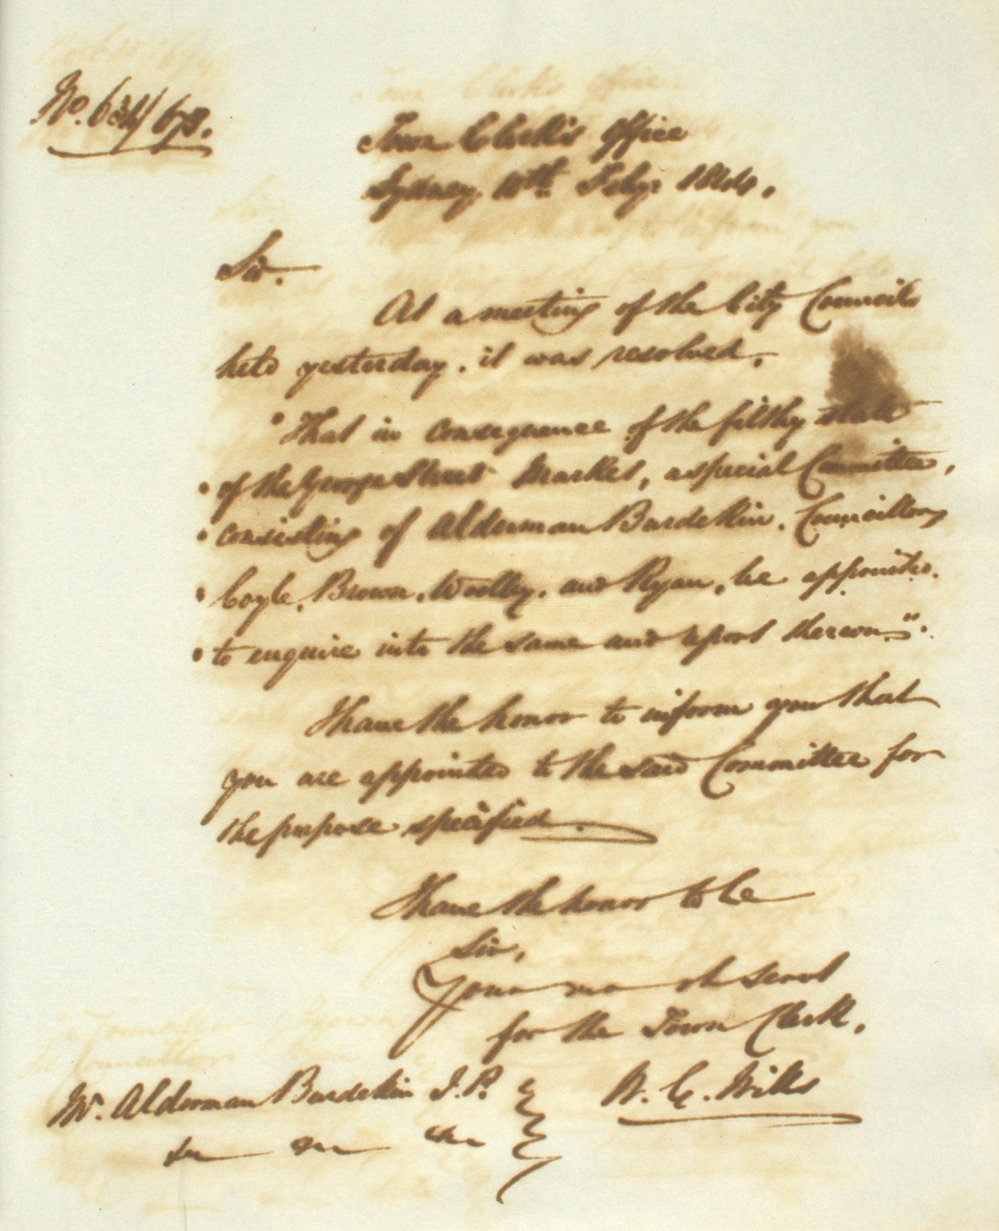 Town Clerk's Office
Sydney, Feby. 1844.
Sir.
At a meeting of the City Council
held yesterday, it was resolved,
"That in consequence of the filthy state
" of the George Street Market, a special Committee,
" consisting of Alderman Burdekin, Councillors
" Coyle, Brown, Woolley, and Ryan, be appointed.
" to enquire into the same and report thereon".
I have the honor to inform you that
you are appointed to the said Committee for
the purpose specified.
I have the honor to be
Sir,
Your mo ob Servt
for the Town Clerk,
W. C. Wills
Mr. Alderman Burdekin J.P.